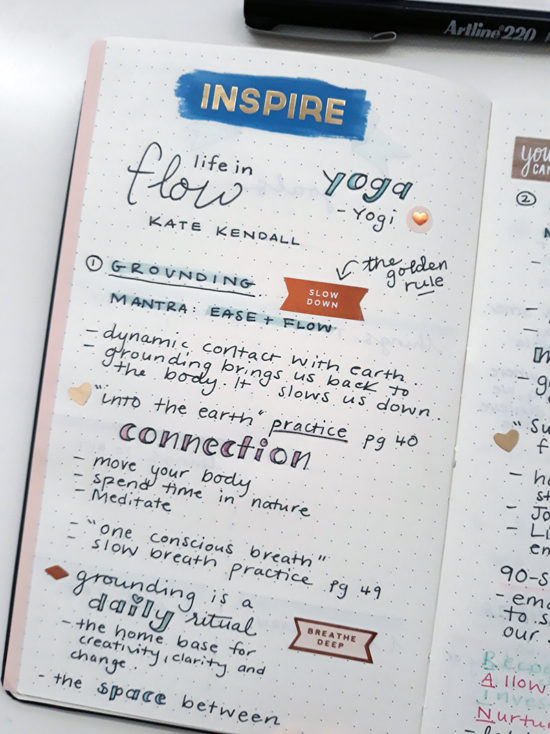 Artline® 220
INSPIRE
life in
flow
KATE KENDALL
yoga
- Yogi
① GROUNDING
SLOW
DOWN
the
golden
rule
MANTRA: EASE + FLOW
- dynamic contact with earth
- grounding brings us back to
the body. It slows us down
"into the earth" practice pg 40
connection
- move your body
- spend time in nature
- Meditate
- "one conscious breath"
- slow breath practice pg 49
grounding is a
daily ritual
- the home base for
creativity, clarity and
change.
BREATHE
DEEP
- the space between
you
CAN
②
90-S
- emo
to s
our
Allow
Nurtu